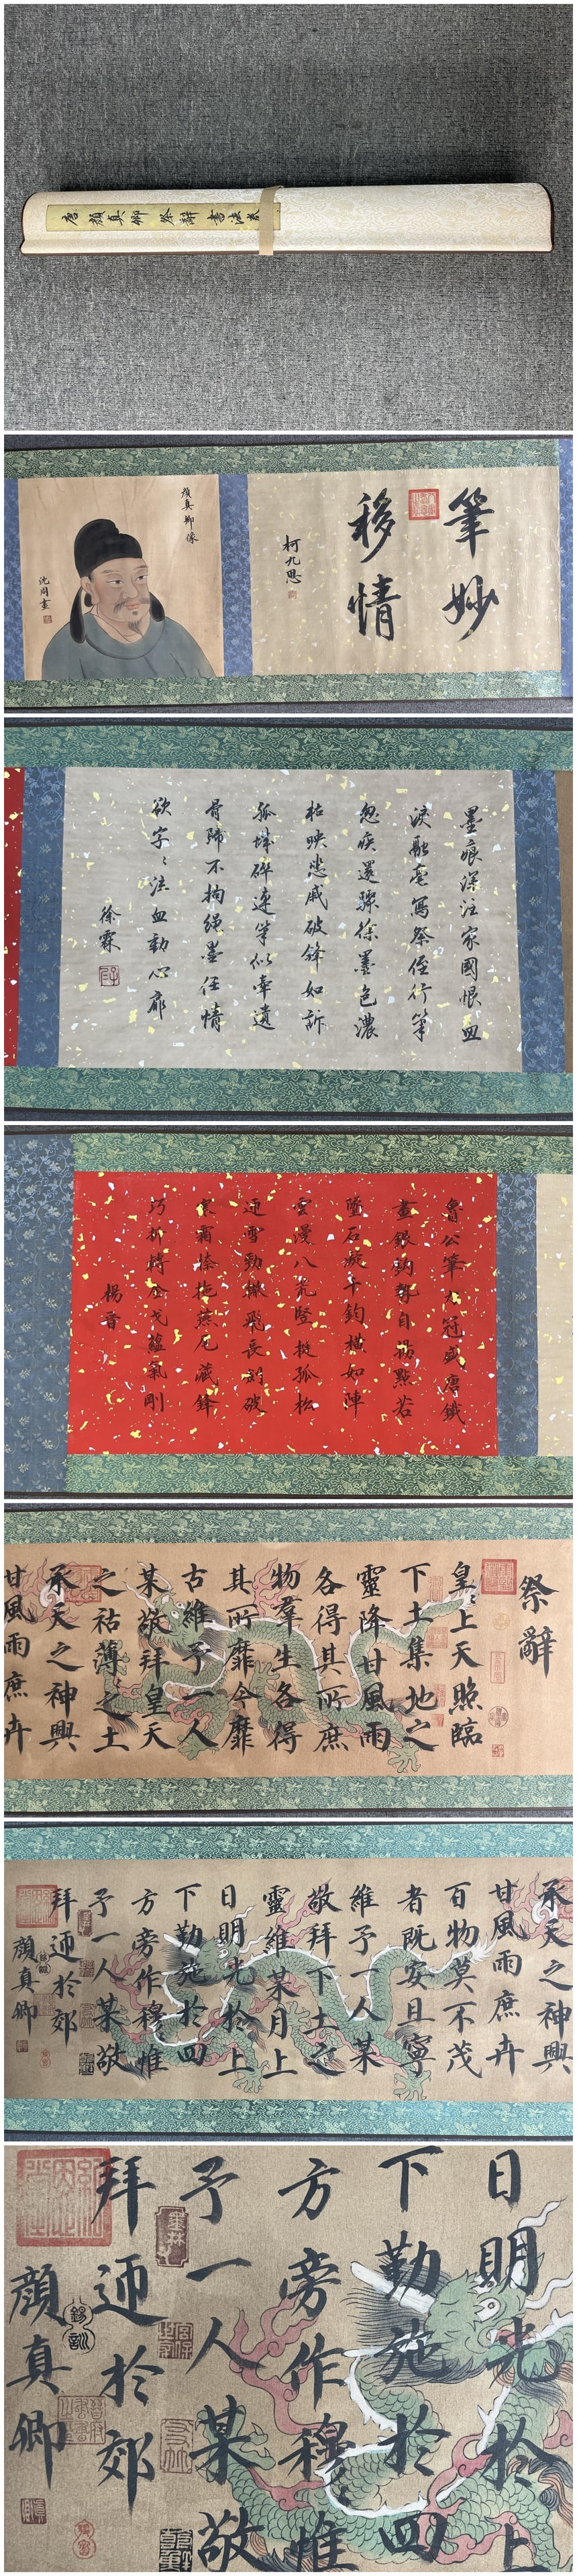 唐顏真卿 祭辭 書法卷
筆妙
移情
柯九思
顏真卿像
沈周畫
墨痕深注家國恨血
淚融毫寫祭侄行筆
忽疾還驟徐墨色濃
枯映悲戚破鋒如訴
孤城碎連筆似牽遺
骨蹄不拘繩墨任情
欲字字泣血動心廊
徐霖
魯公筆力冠盛唐鐵
畫銀鉤勢自揚點若
墮石凝千鈞橫如陣
雲漫八荒豎挺孤松
迎雪勁撇飛長劍破
寒霜捺拖燕尾藏鋒
巧折轉金戈蘊氣剛
楊晉
祭辭
皇皇上天照臨
下土集地之
靈降甘風雨
各得其所庶
物羣生各得
其所靡今靡
古維予一人
某敬拜皇天
之祜薄薄之土
承天之神興
甘風雨庶卉
承天之神興
甘風雨庶卉
百物莫不茂
者既安且寧
維予一人某
敬拜下土之
靈維某月上
日明光於上
下勤施於四
方旁作穆惟
予一人某敬
拜迊於郊
顏真卿
日明光於上
下勤施於四
方旁作穆惟
予一人某敬
拜迊於郊
顏真卿